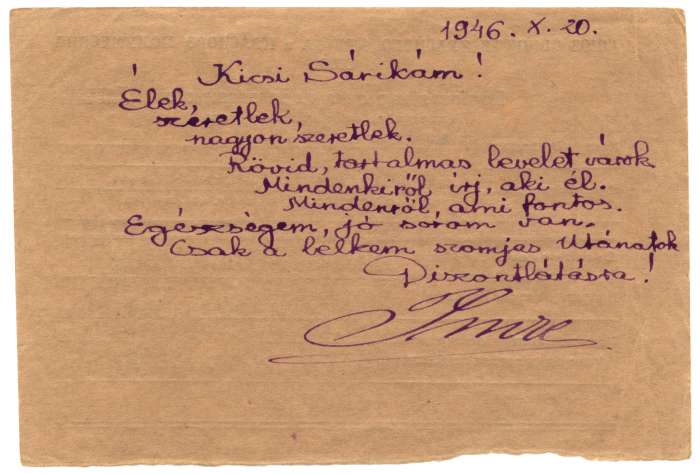 1946. X. 20.
Kicsi Sárikám!
Élek,
szeretlek,
nagyon szeretlek.
Rövid, tartalmas levelet várok.
Mindenkiről írj, aki él.
Mindenről, ami fontos.
Egészségem, jó sorom van.
Csak a lelkem szomjas Utánatok
Viszontlátásra!
Imre